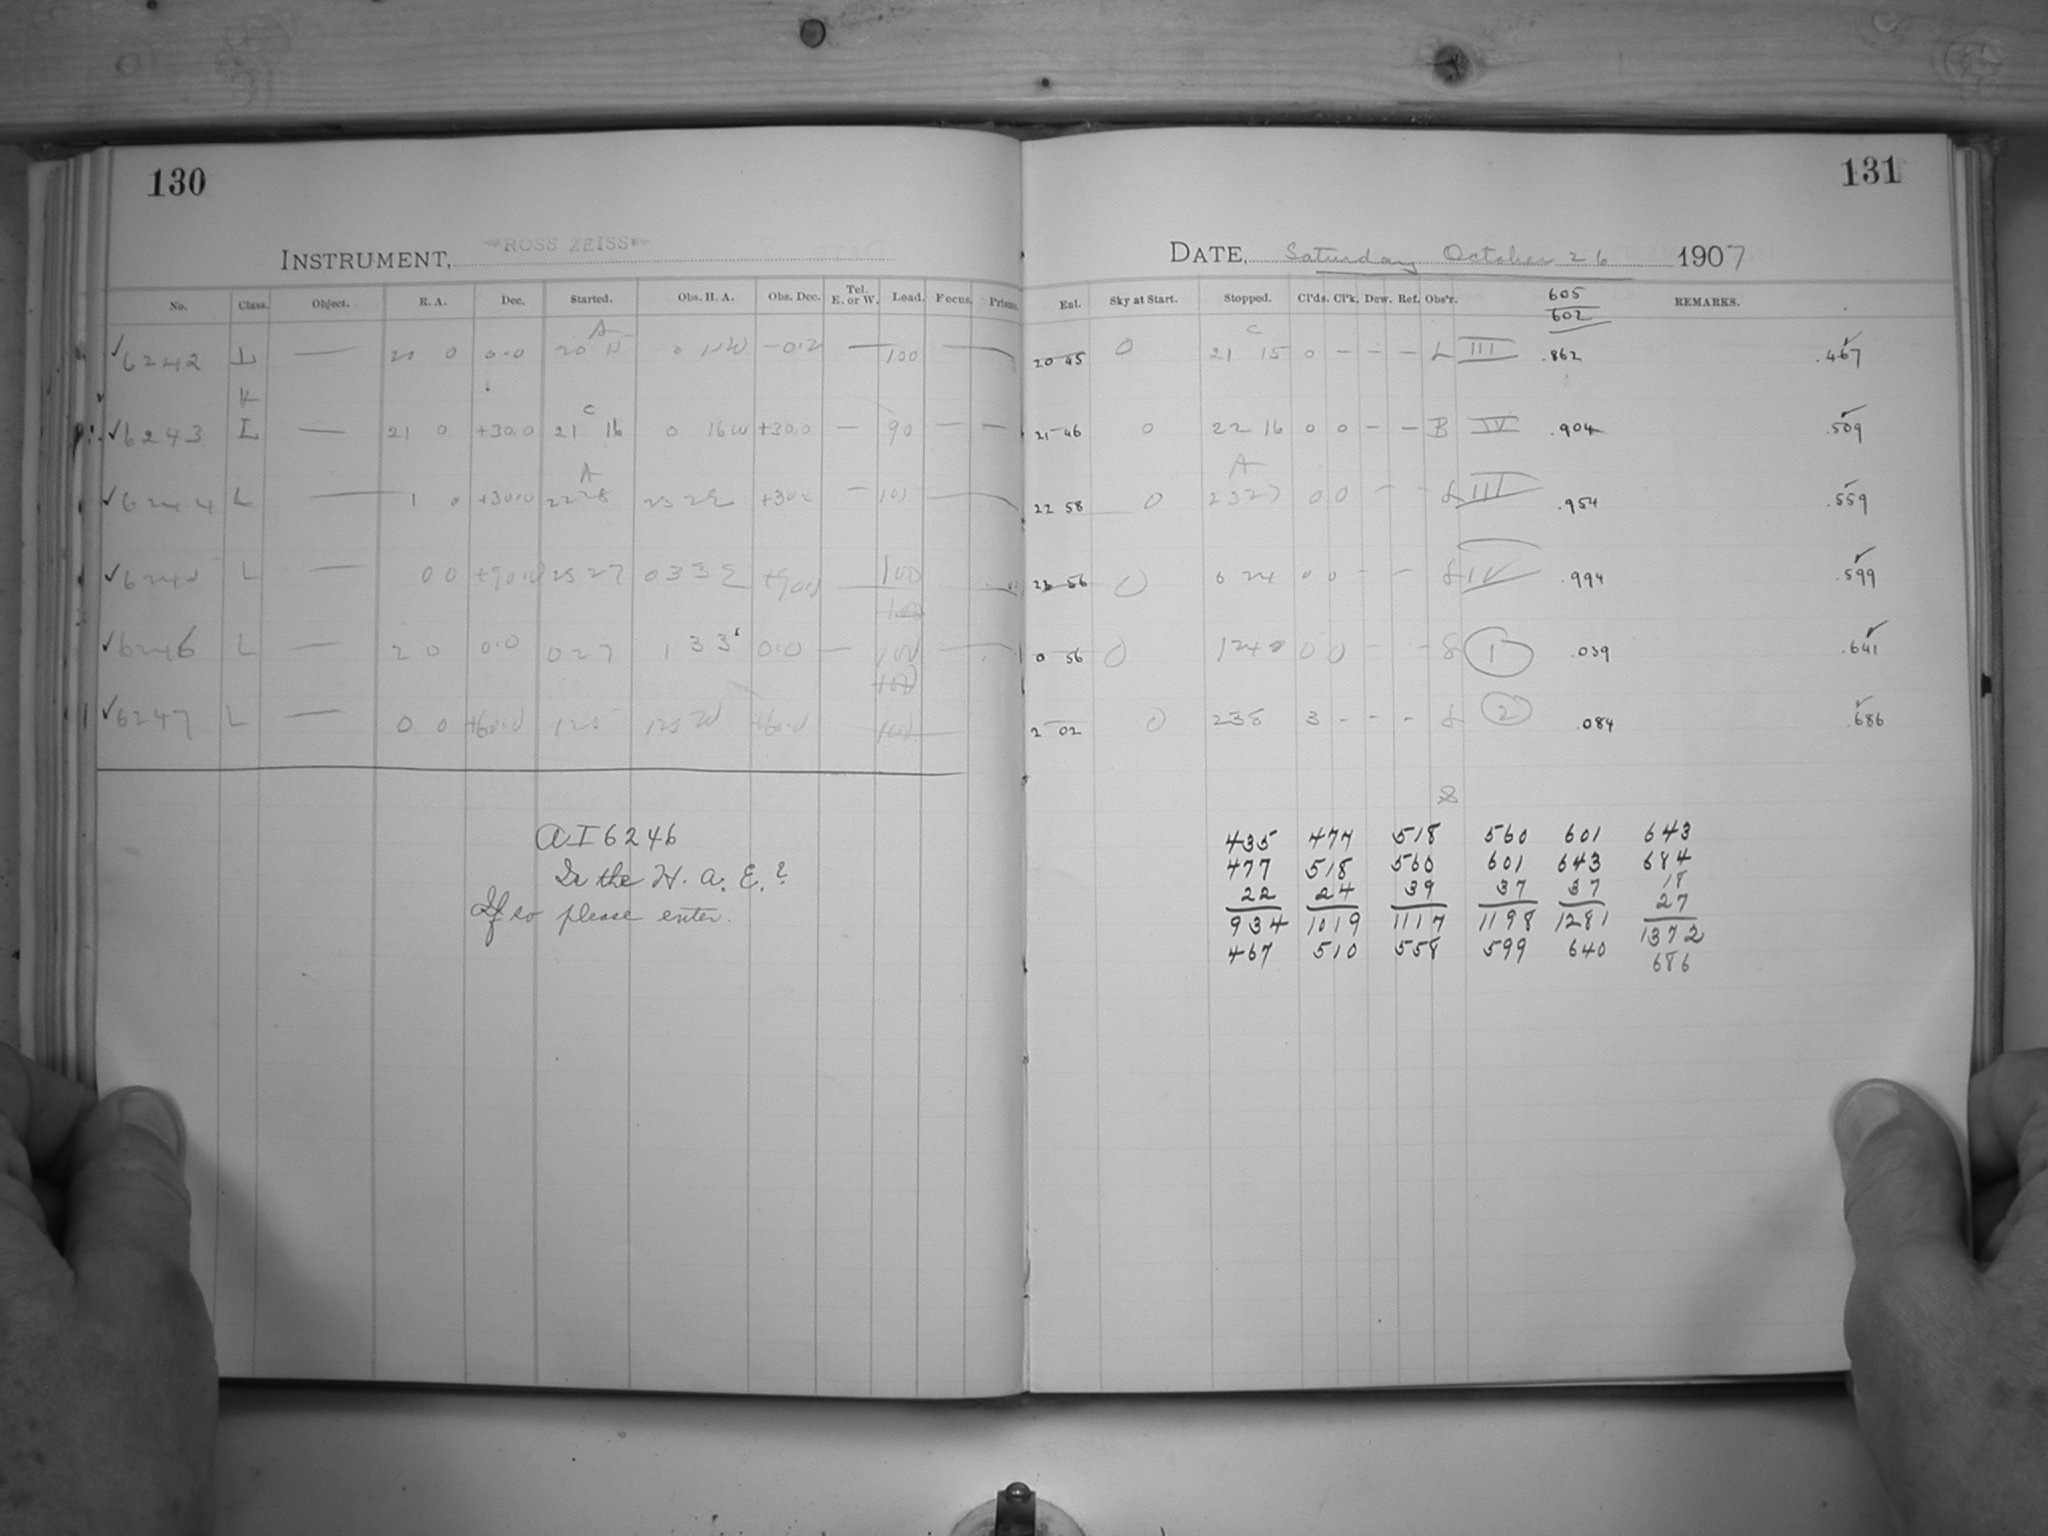 130
INSTRUMENT, ROSS ZEISS
No. Class. Object. R. A. Dec. Started. Obs. H. A. Obs. Dec. Tel. E. or W. Load. Focus. Prisms
A
6242 L — 0 0.0 20 0 — 100 —
6243 L — 21 0 +30.0 21 16 0 16W +30.0 — 90 — —
C
A
6244 L — 1 0 +30.0 22 28 —
L — 0 0 23 27 0 33 E 100
6246 L — 2 0 0.0 0 27 1 33 0.0 — 100
6247 L — 0 0 +60.0
AI 6246
Is the H. A. E.?
If so please enter.
131
DATE, Saturday October 26 1907
Enl. Sky at Start. Stopped. Cl'ds. Cl'k. Dew. Ref. Obs'r. REMARKS.
605
602
C
20 45 0 21 15 0 – – – L III .862 .467
21 46 0 22 16 0 0 – – B IV .904 .509
A
22 58 0 23 27 0 0 – – III .954 .559
23 56 0 0 24 0 0 – – IV .994 .599
0 56 0 0 0 – – 1 .039 .641
2 02 0 2 38 3 – – – 2 .084 .686
435 477 518 560 601 643
477 518 560 601 643 684
22 24 39 37 37 18
27
934 1019 1117 1198 1281 1372
467 510 558 599 640 686